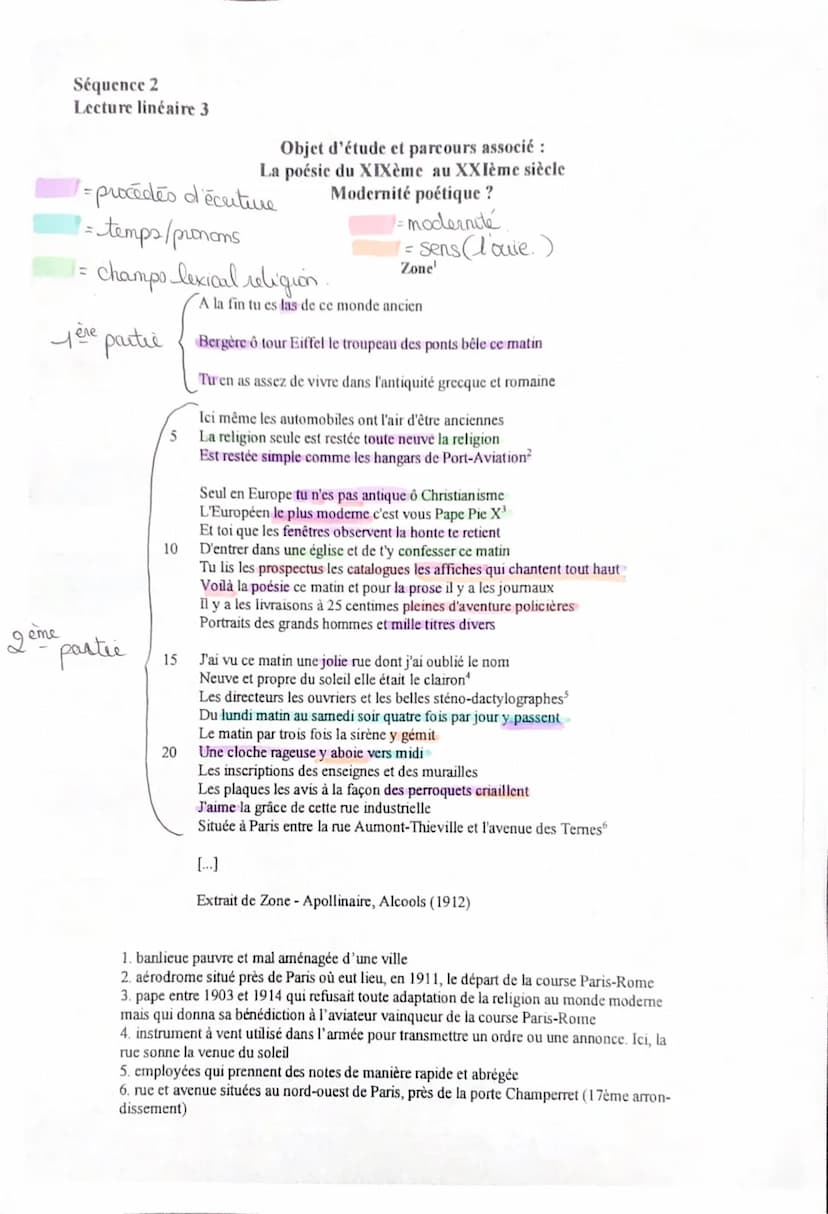 Séquence 2
Lecture linéaire 3
Objet d'étude et parcours associé :
La poésie du XIXème au XXIème siècle
Modernité poétique ?
= procédés d'écriture
= temps/pronoms
= champs lexical religion.
= modernité
= sens (l'ouie.)
Zone¹
1ère partie
A la fin tu es las de ce monde ancien
Bergère ô tour Eiffel le troupeau des ponts bêle ce matin
Tu en as assez de vivre dans l'antiquité grecque et romaine
2ème partie
Ici même les automobiles ont l'air d'être anciennes
5 La religion seule est restée toute neuve la religion
Est restée simple comme les hangars de Port-Aviation²
Seul en Europe tu n'es pas antique ô Christianisme
L'Européen le plus moderne c'est vous Pape Pie X³
Et toi que les fenêtres observent la honte te retient
10 D'entrer dans une église et de t'y confesser ce matin
Tu lis les prospectus les catalogues les affiches qui chantent tout haut
Voilà la poésie ce matin et pour la prose il y a les journaux
Il y a les livraisons à 25 centimes pleines d'aventure policières
Portraits des grands hommes et mille titres divers
15 J'ai vu ce matin une jolie rue dont j'ai oublié le nom
Neuve et propre du soleil elle était le clairon⁴
Les directeurs les ouvriers et les belles sténo-dactylographes⁵
Du lundi matin au samedi soir quatre fois par jour y passent
Le matin par trois fois la sirène y gémit
20 Une cloche rageuse y aboie vers midi
Les inscriptions des enseignes et des murailles
Les plaques les avis à la façon des perroquets criaillent
J'aime la grâce de cette rue industrielle
Située à Paris entre la rue Aumont-Thieville et l'avenue des Ternes⁶
[...]
Extrait de Zone - Apollinaire, Alcools (1912)
1. banlieue pauvre et mal aménagée d'une ville
2. aérodrome situé près de Paris où eut lieu, en 1911, le départ de la course Paris-Rome
3. pape entre 1903 et 1914 qui refusait toute adaptation de la religion au monde moderne
mais qui donna sa bénédiction à l'aviateur vainqueur de la course Paris-Rome
4. instrument à vent utilisé dans l'armée pour transmettre un ordre ou une annonce. Ici, la
rue sonne la venue du soleil
5. employées qui prennent des notes de manière rapide et abrégée
6. rue et avenue situées au nord-ouest de Paris, près de la porte Champerret (17ème arron-
dissement)